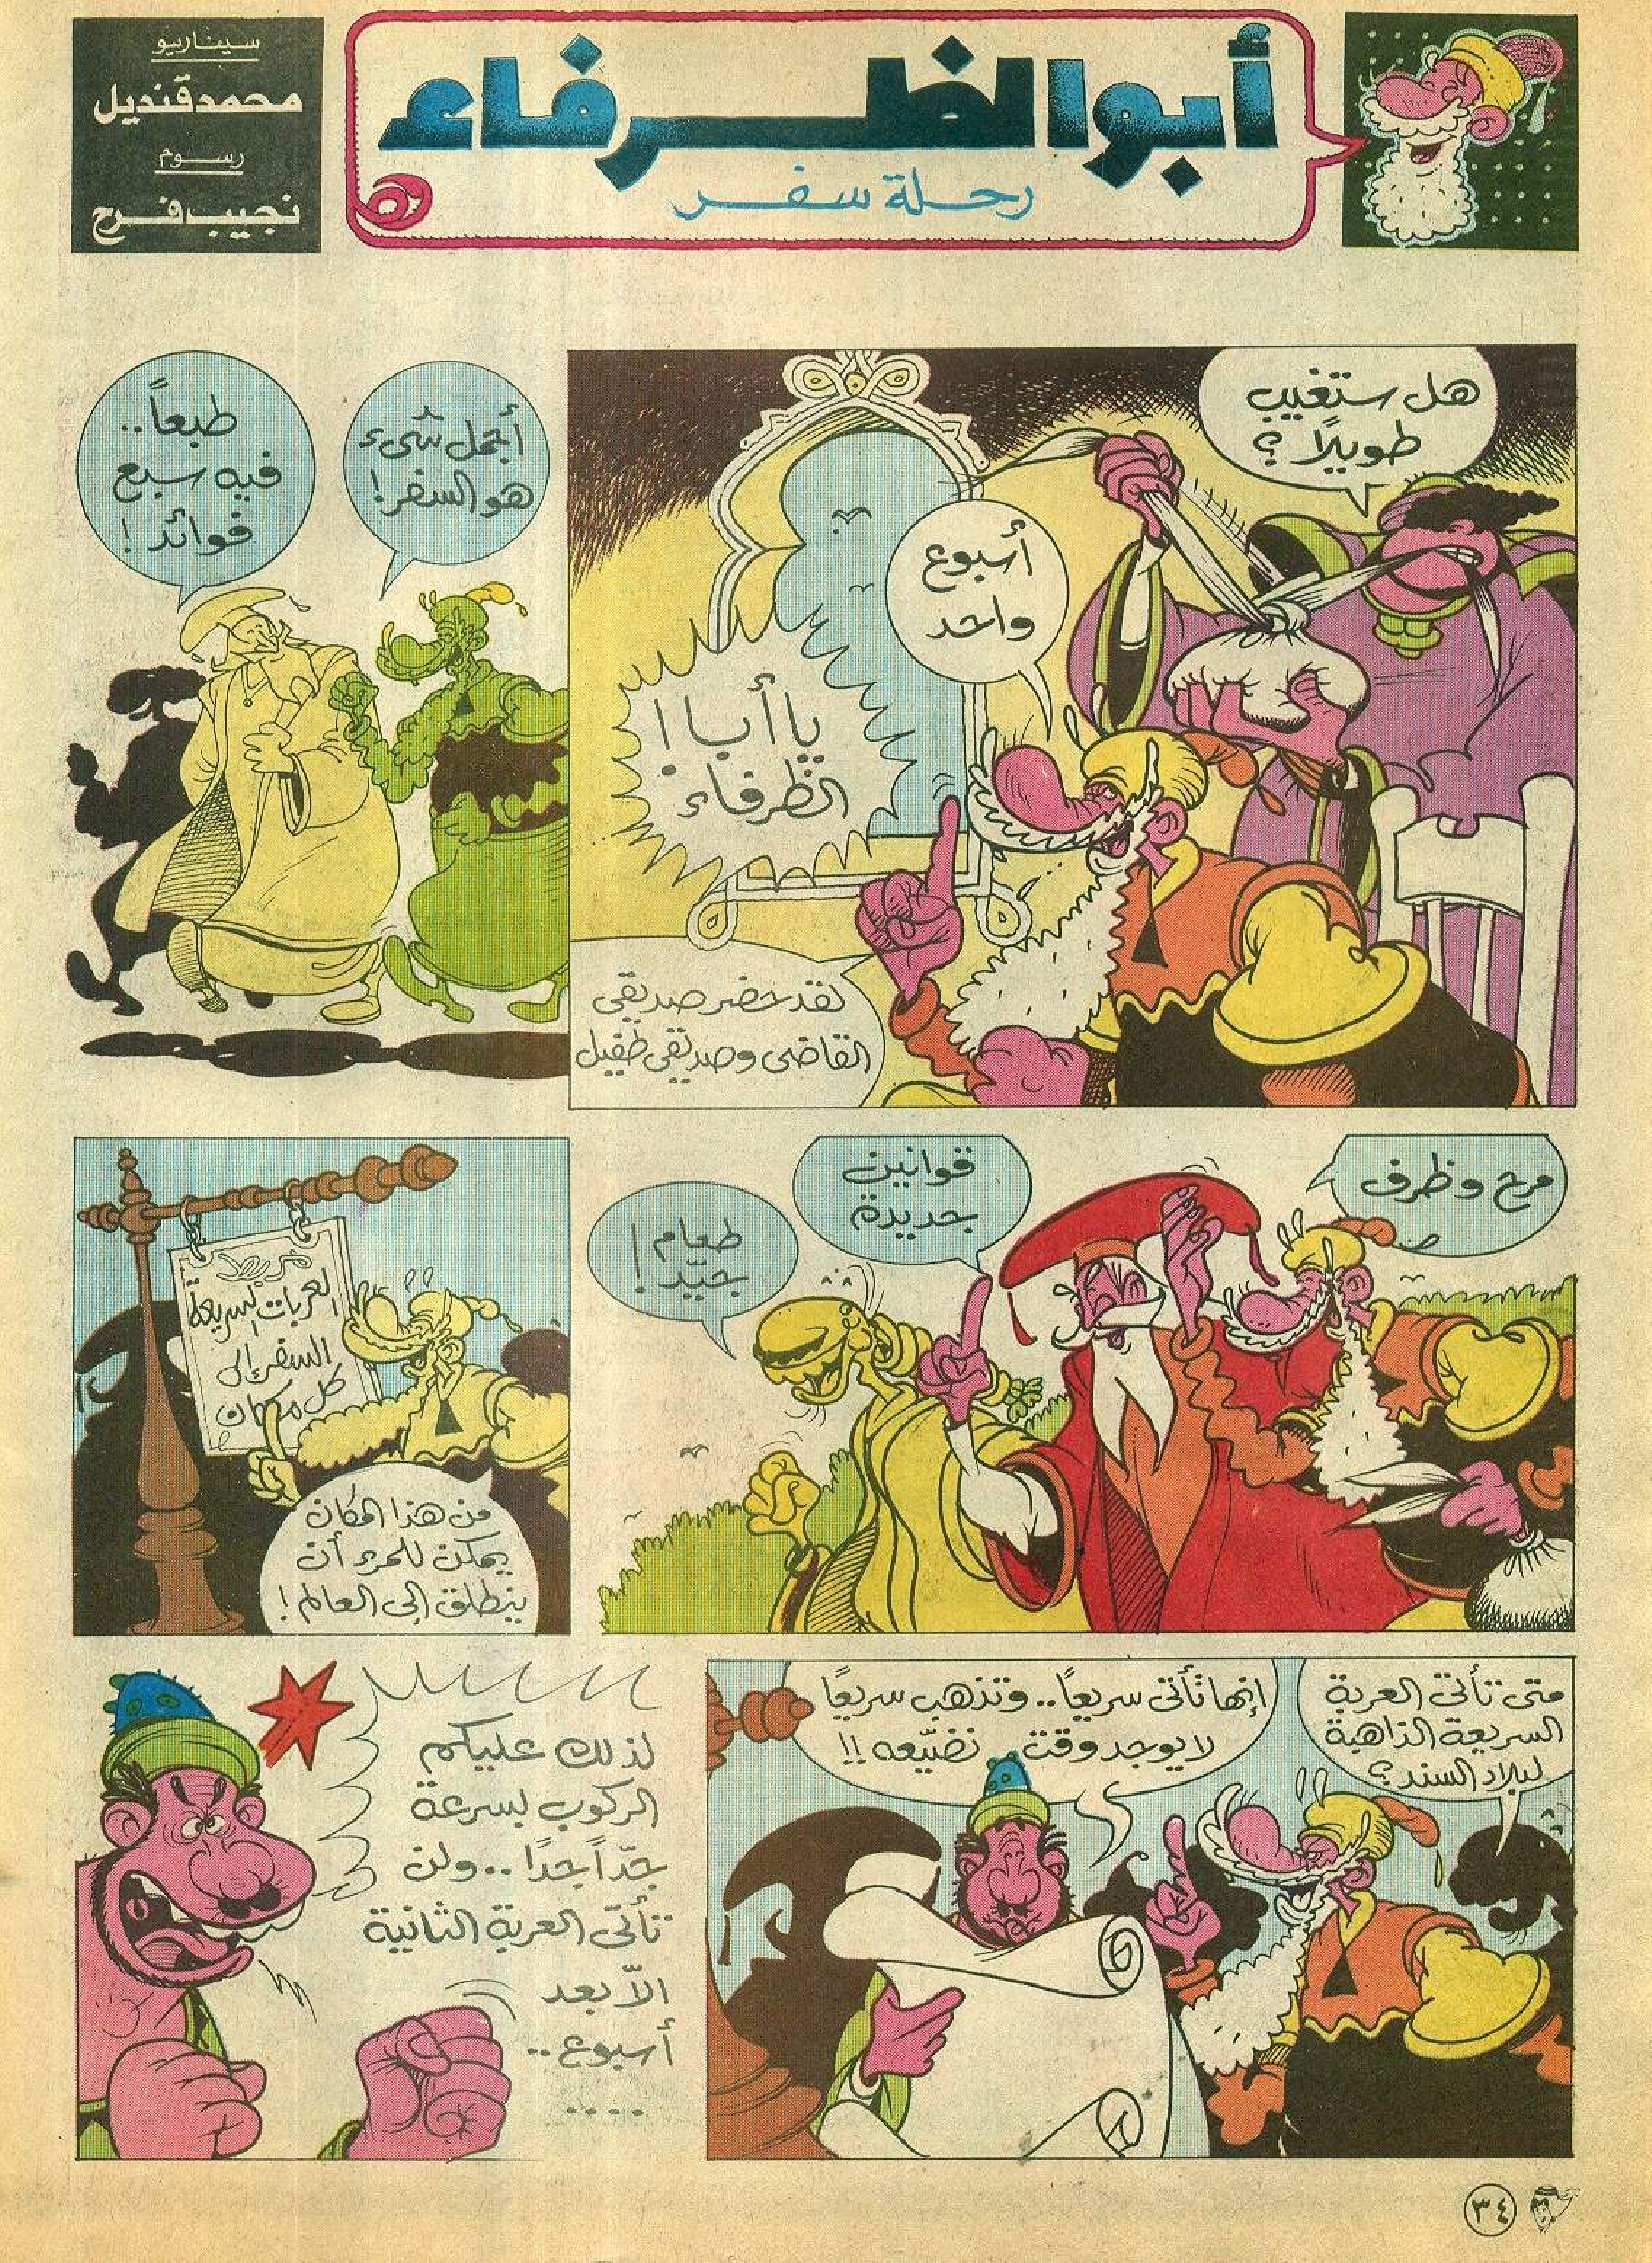 أبو الظرفاء
رحلة سفر
سيناريو
محمد قنديل
رسوم
نجيب فرح
هل ستغيب
طويلاً؟
أسبوع
واحد
يا أبا
الظرفاء
لقد حضر صديقي
القاضى وصديقى طفيل
أجمل شىء
هو السفر!
طبعاً..
فيه سبع
فوائد!
مرح وظرف
قوانين
جديدة
طعام
جيّد!
مربط
العربات السريعة
السفر إلى
كل مكان
من هذا المكان
يمكن للمرء أن
ينطلق إلى العالم!
متى تأتى العربة
السريعة الذاهبة
لبلاد السند؟
إنها تأتى سريعاً.. وتذهب سريعًا
لا يوجد وقت نضيّعه!!
لذلك عليكم
الركوب بسرعة
جدّاً جدًا.. ولن
تأتى العربة الثانية
الاّ بعد
أسبوع..
....
٣٤